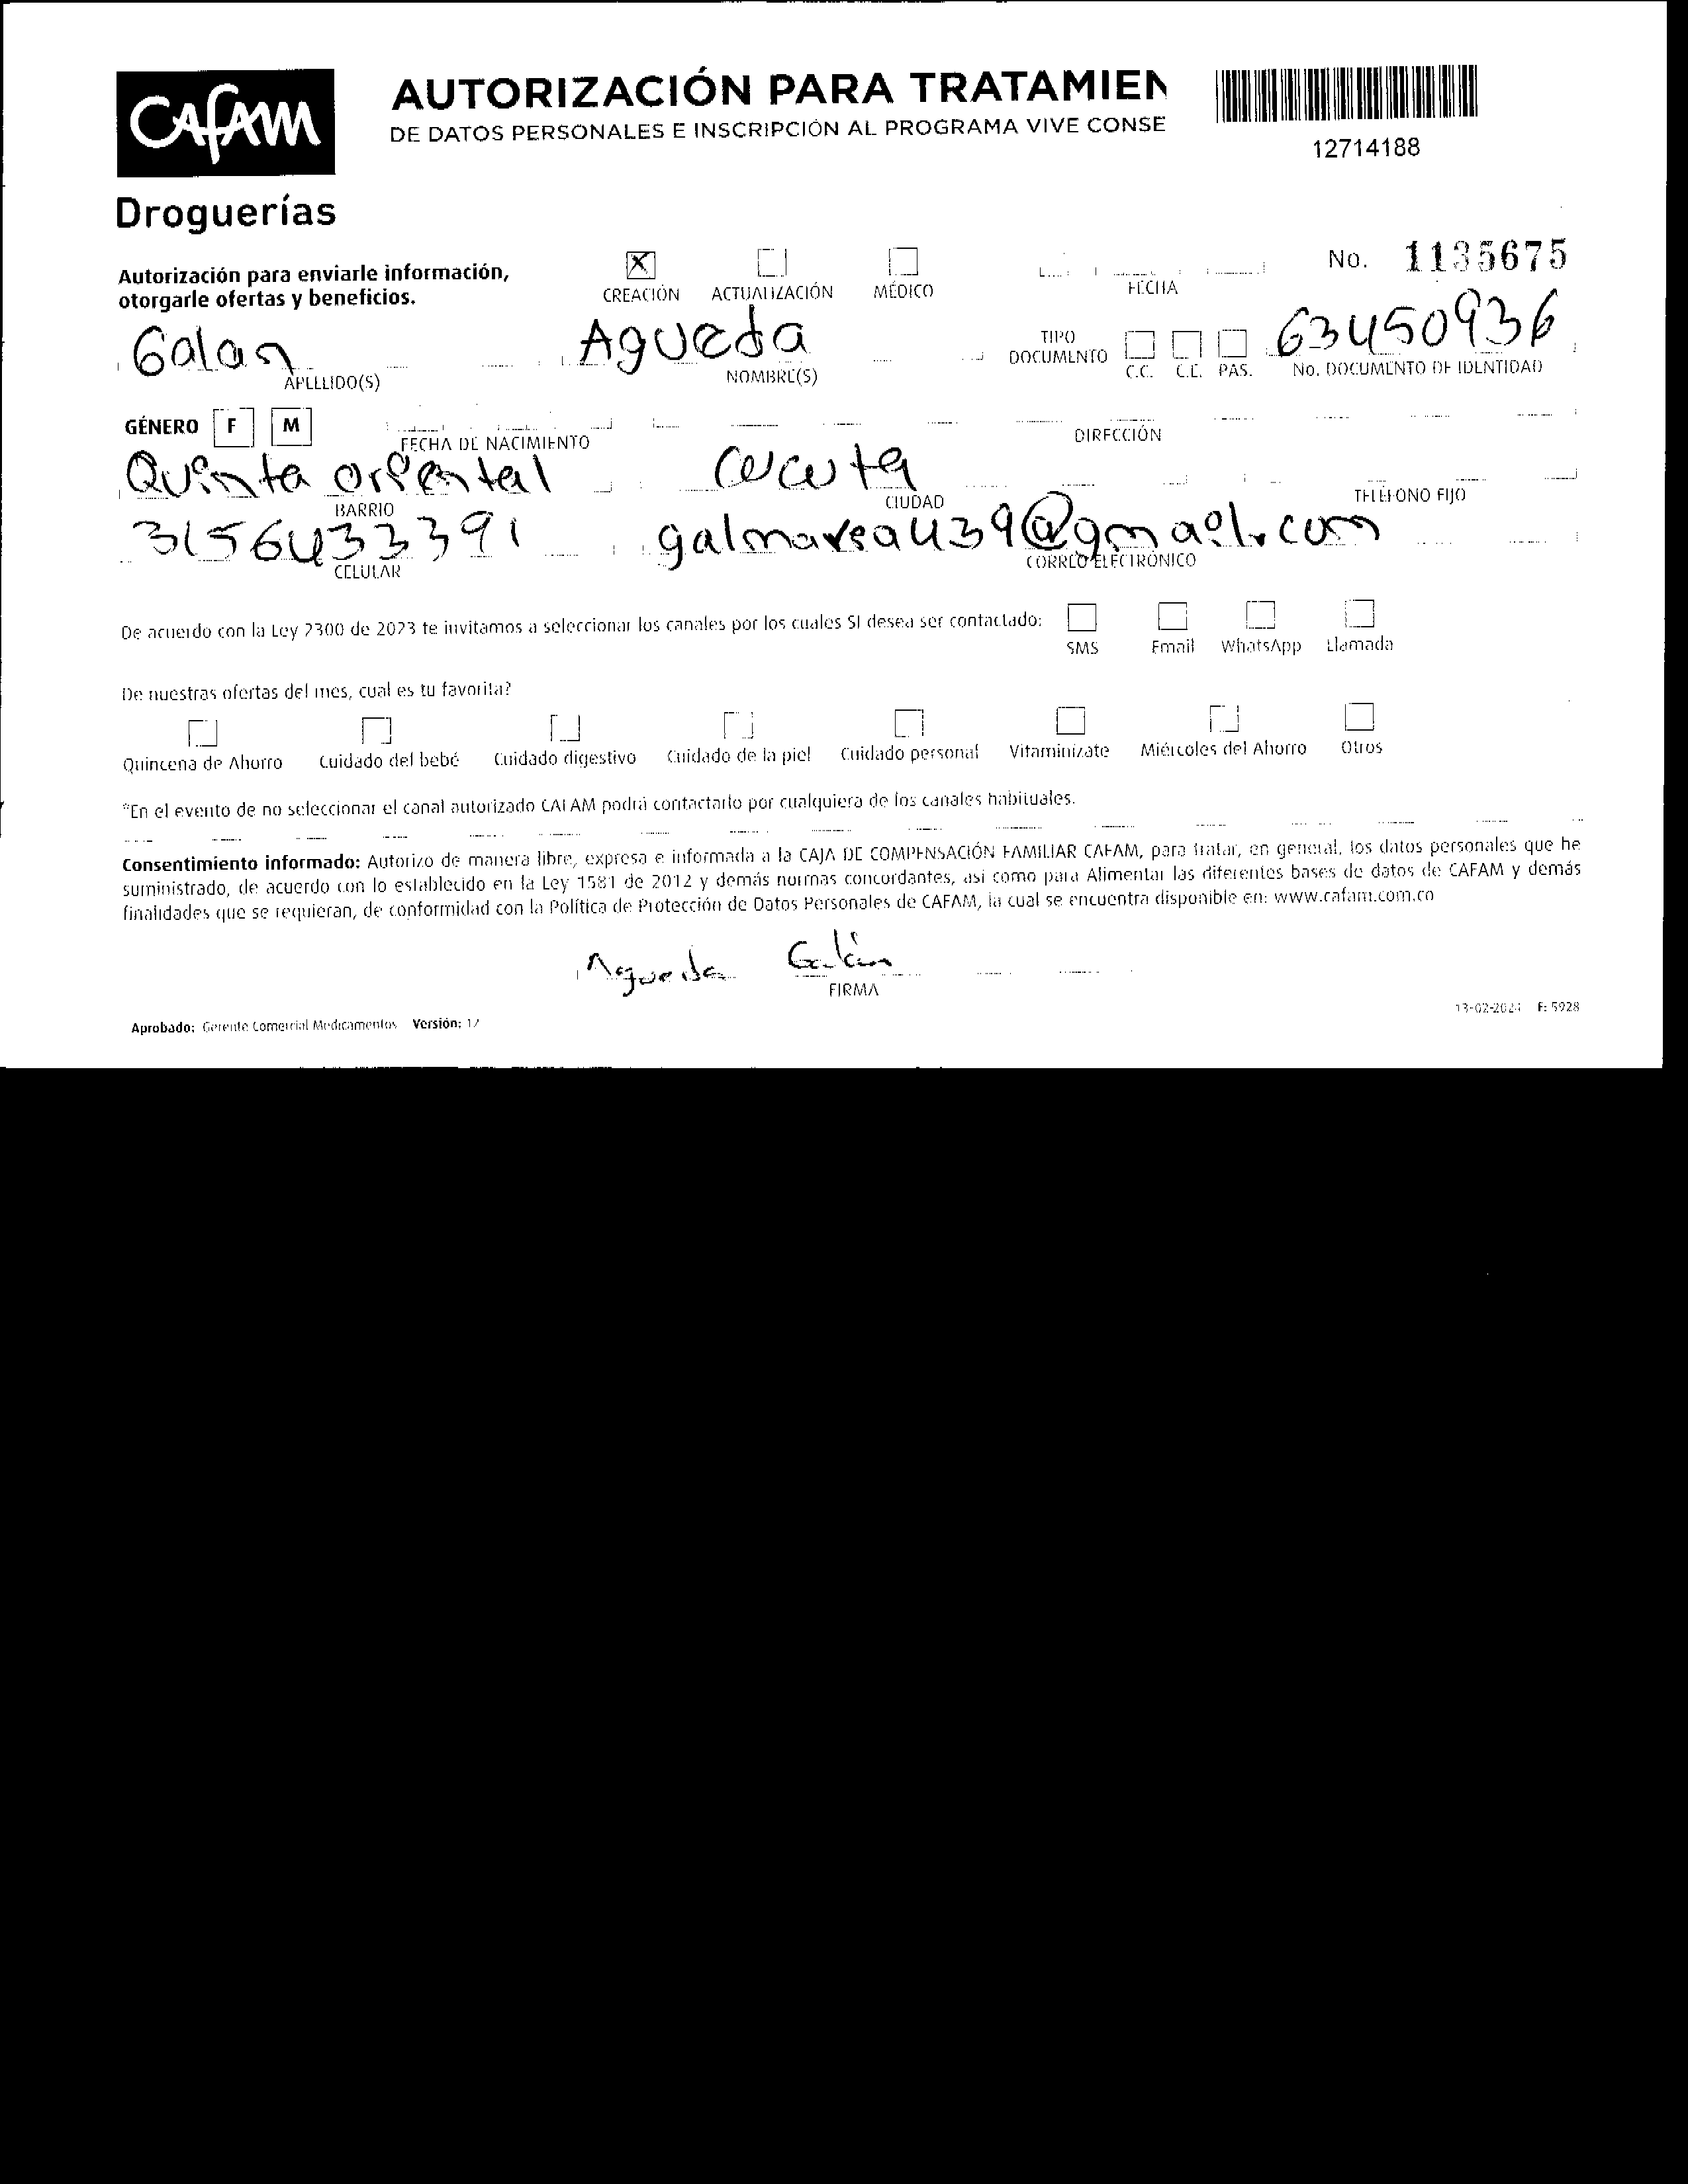 CAFAM
Droguerías
AUTORIZACIÓN PARA TRATAMIEN
DE DATOS PERSONALES E INSCRIPCIÓN AL PROGRAMA VIVE CONSE
12714188
No. 1135675
Autorización para enviarle información,
otorgarle ofertas y beneficios.
X
CREACIÓN ACTUALIZACIÓN MÉDICO FECHA
Galan Agueda 63450936
APELLIDO(S) NOMBRE(S) TIPO DOCUMENTO C.C. C.E. PAS. No. DOCUMENTO DE IDENTIDAD
GÉNERO F M FECHA DE NACIMIENTO DIRECCIÓN
Quinta oriental Cucuta
BARRIO CIUDAD TELÉFONO FIJO
3156433391 galmarea439@gmail.com
CELULAR CORREO ELECTRÓNICO
De acuerdo con la Ley 2300 de 2023 te invitamos a seleccionar los canales por los cuales SI desea ser contactado:
SMS Email WhatsApp Llamada
De nuestras ofertas del mes, cual es tu favorita?
Quincena de Ahorro Cuidado del bebé Cuidado digestivo Cuidado de la piel Cuidado personal Vitaminízate Miércoles del Ahorro Otros
*En el evento de no seleccionar el canal autorizado CAFAM podrá contactarlo por cualquiera de los canales habituales.
Consentimiento informado: Autorizo de manera libre, expresa e informada a la CAJA DE COMPENSACIÓN FAMILIAR CAFAM, para tratar, en general, los datos personales que he
suministrado, de acuerdo con lo establecido en la Ley 1581 de 2012 y demás normas concordantes, asi como para Alimentar las diferentes bases de datos de CAFAM y demás
finalidades que se requieran, de conformidad con la Política de Protección de Datos Personales de CAFAM, la cual se encuentra disponible en: www.cafam.com.co
Agueda Galán
FIRMA
Aprobado: Gerente Comercial Medicamentos Versión: 12
F: 5928